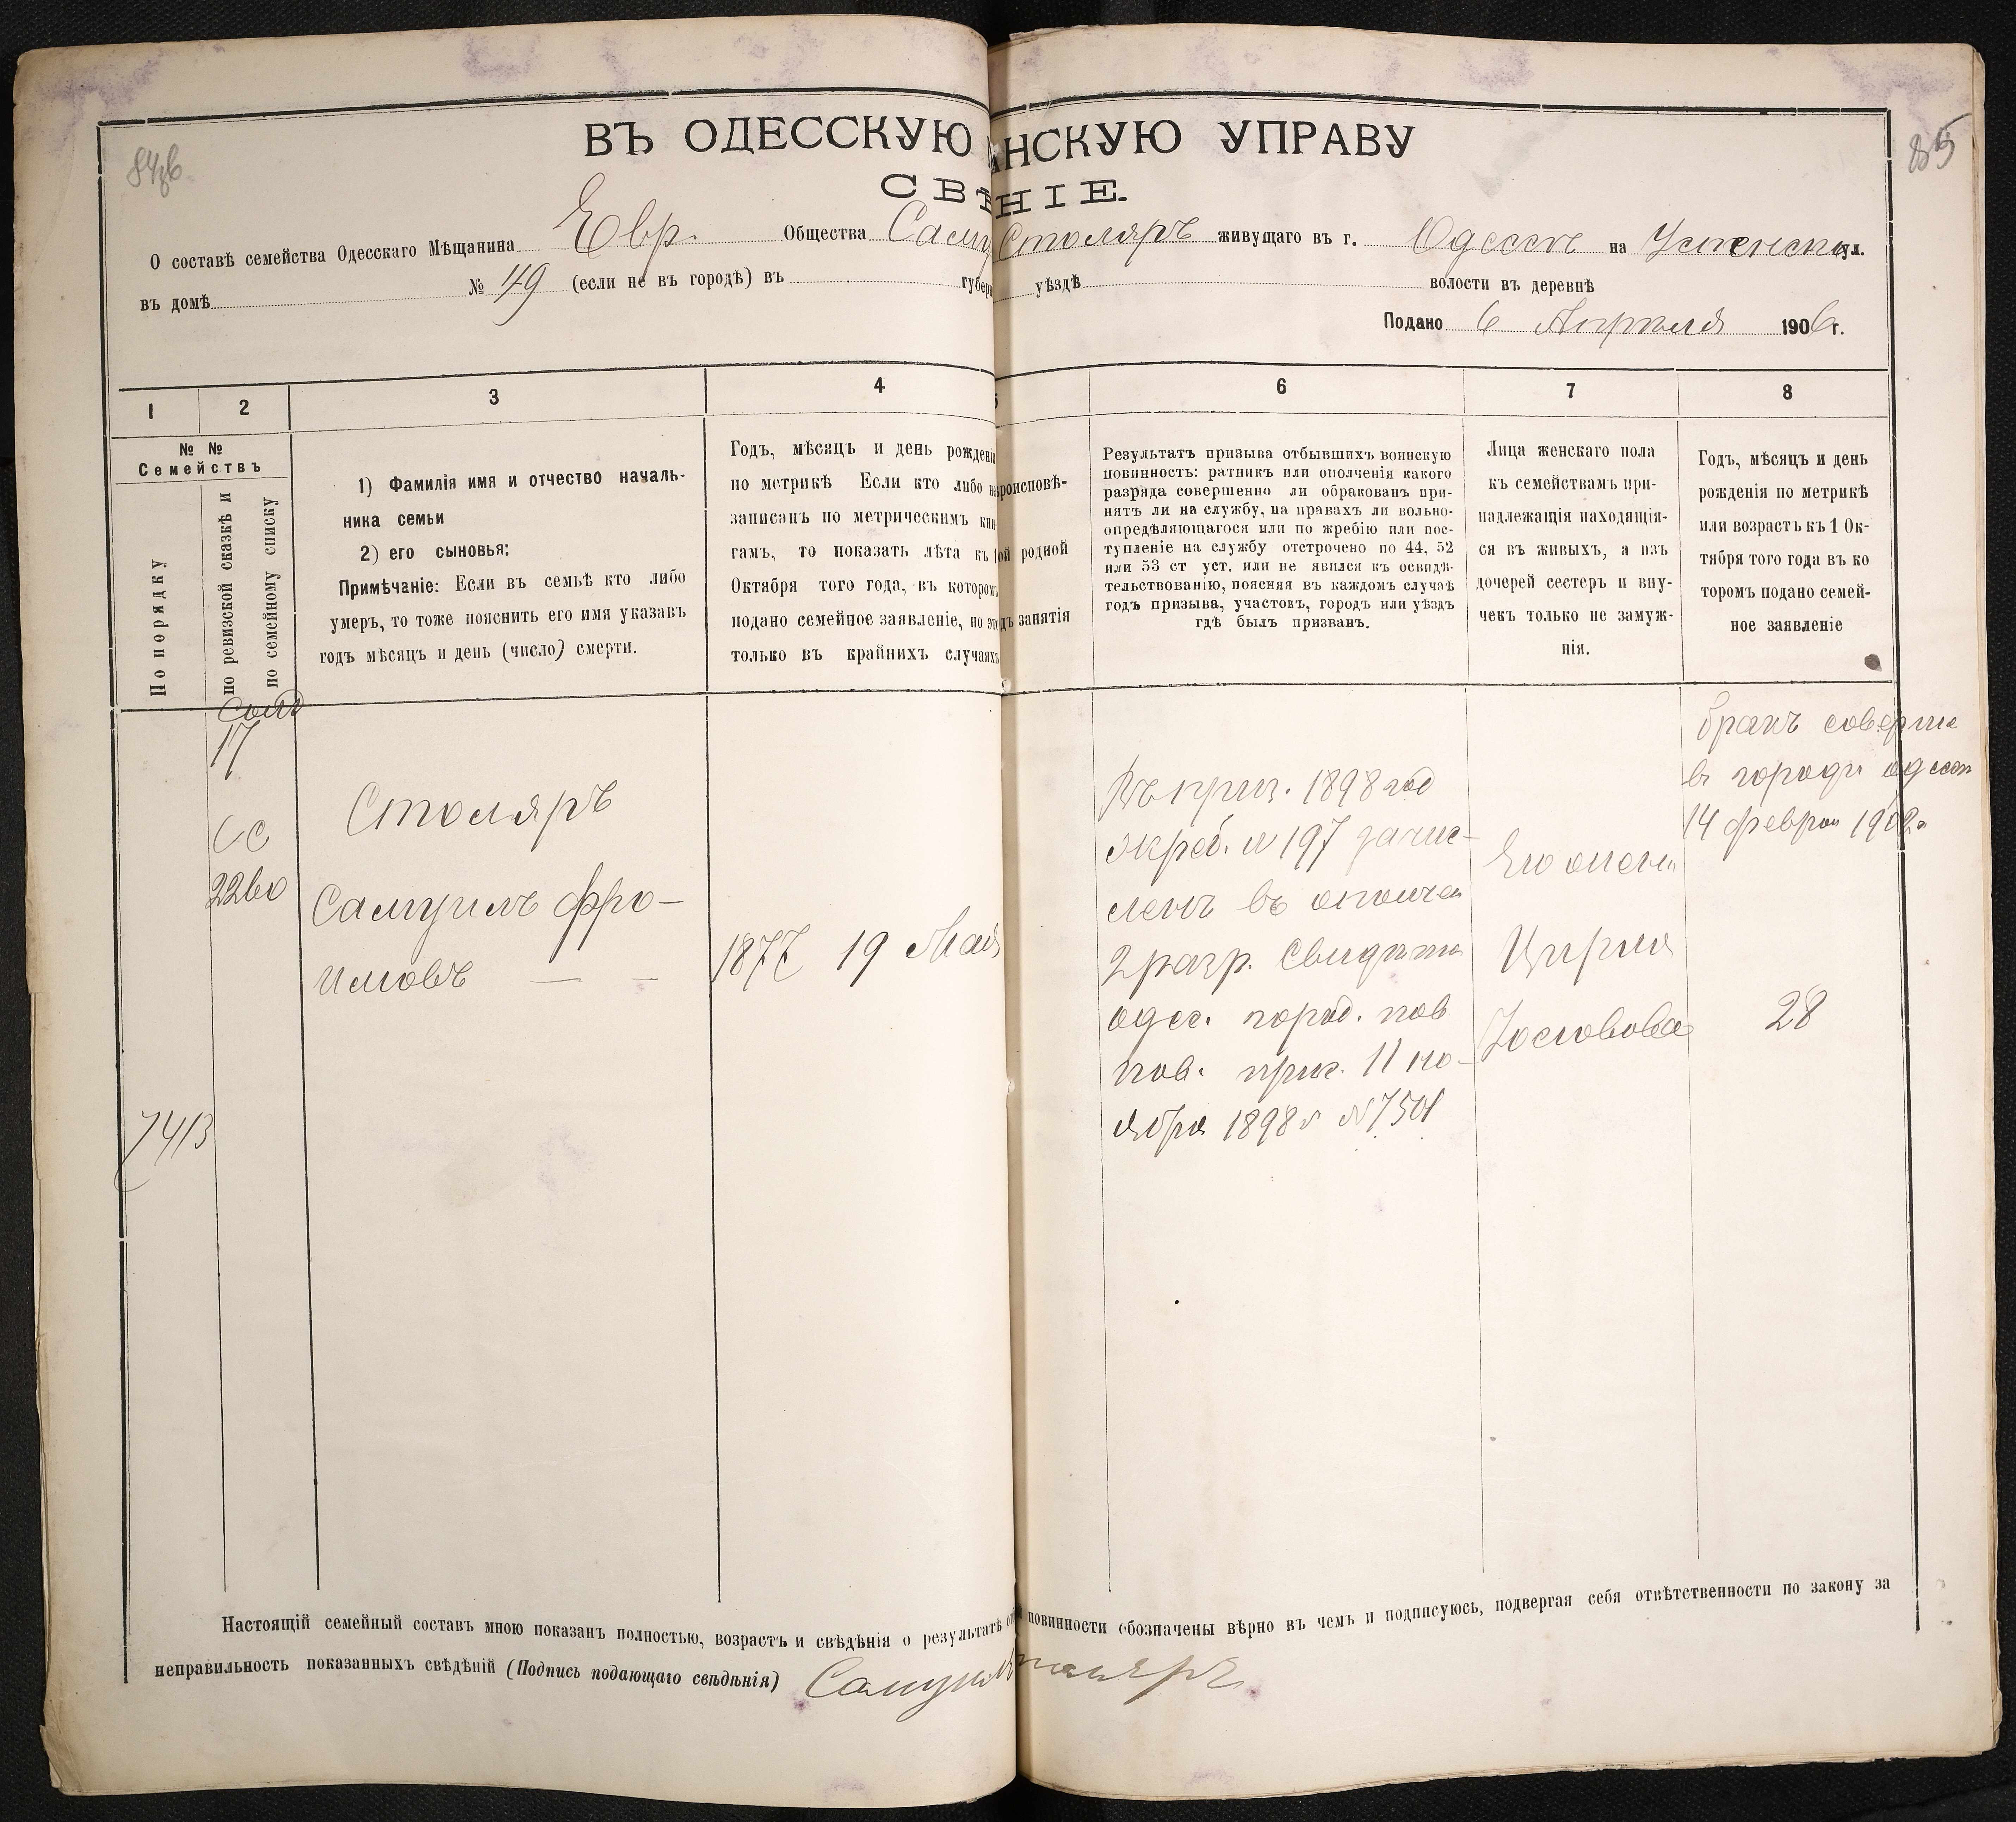 ВЪ ОДЕССКУЮ АНСКУЮ УПРАВУ
СВѢНІЕ.
85
О составѣ семейства Одесскаго Мѣщанина Евр. Общества Саму Столяръ живущаго въ г. Одессѣ на Успенск ул.
въ домѣ № 49 (если не въ городѣ) въ губер уѣздѣ волости въ деревнѣ
Подано 6 Апрѣля 1906 г.
1 2 3 4 5 6 7 8
№ №
Семействъ
По порядку
по ревизской сказкѣ и
по семейному списку
1) Фамилія имя и отчество началь-
ника семьи
2) его сыновья:
Примѣчаніе: Если въ семьѣ кто либо
умеръ, то тоже пояснить его имя указавъ
годъ мѣсяцъ и день (число) смерти.
Годъ, мѣсяцъ и день рожденія
по метрикѣ Если кто либо не
записанъ по метрическимъ кни-
гамъ, то показать лѣта къ 1
Октября того года, въ которомъ
подано семейное заявленіе, но это
только въ крайнихъ случаяхъ
роисповѣ-
ой родной
дъ занятія
Результатъ призыва отбывшихъ воинскую
повинность: ратникъ или ополченія какого
разряда совершенно ли обракованъ при-
нятъ ли на службу, на правахъ ли вольно-
опредѣляющагося или по жребію или пос-
тупленіе на службу отстрочено по 44, 52
или 53 ст уст. или не явился къ освидѣ-
тельствованію, поясняя въ каждомъ случаѣ
годъ призыва, участокъ, городъ или уѣздъ
гдѣ былъ призванъ.
Лица женскаго пола
къ семействамъ при-
надлежащія находящія-
ся въ живыхъ, а изъ
дочерей сестеръ и вну-
чекъ только не замуж-
нія.
Годъ, мѣсяцъ и день
рожденія по метрикѣ
или возрастъ къ 1 Ок-
тября того года въ ко
торомъ подано семей-
ное заявленіе
17
7413
Столяръ
Самуилъ Фро-
имовъ — —
1877 19 Мая
Въ приз. 1898 год
жреб. № 197 зачис-
ленъ въ ополчен
2 разр. Свидѣт
одес. город. пов
пов. прис. 11 но-
ября 1898 г №7501
Его жен
Цирля
Іосіовова
бракъ соверше
въ городѣ одесс
14 феврал 1902 г
28
Настоящій семейный составъ мною показанъ полностью, возрастъ и свѣдѣнія о результатѣ повинности обозначены вѣрно въ чемъ и подписуюсь, подвергая себя отвѣтственности по закону за
неправильность показанныхъ свѣдѣній (Подпись подающаго свѣдѣнія) Самуил толяръ